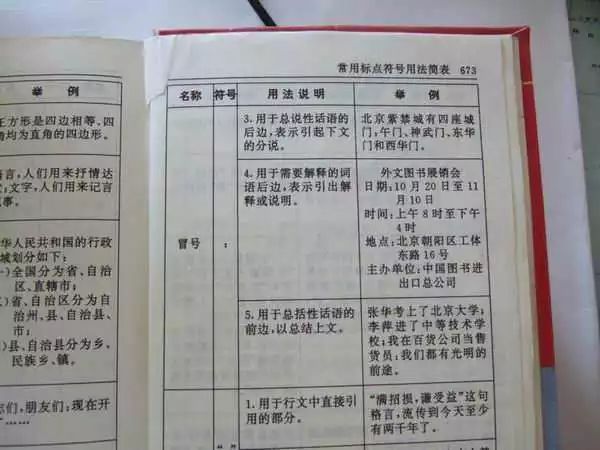 举 例
正方形是四边相等、四
角均为直角的四边形。
语言,人们用来抒情达
文字,人们用来记言
事。
华人民共和国的行政
域划分如下:
一)全国分为省、自治
区、直辖市;
省、自治区分为自
治州、县、自治县、
市;
县、自治县分为乡、
民族乡、镇。
们,朋友们:现在开
……”
常用标点符号用法简表 673
名称 符号 用法说明 举 例
冒号 :
3.用于总说性话语的
后边,表示引起下文
的分说。
北京紫禁城有四座城
门:午门、神武门、东华
门和西华门。
4.用于需要解释的词
语后边,表示引出解
释或说明。
外文图书展销会
日期:10月20日至11
月10日
时间:上午8时至下午
4时
地点:北京朝阳区工体
东路16号
主办单位:中国图书进
出口总公司
5.用于总括性话语的
前边,以总结上文。
张华考上了北京大学;
李萍进了中等技术学
校;我在百货公司当售
货员:我们都有光明的
前途。
1.用于行文中直接引
用的部分。
“满招损,谦受益”这句
格言,流传到今天至少
有两千年了。
“ ”